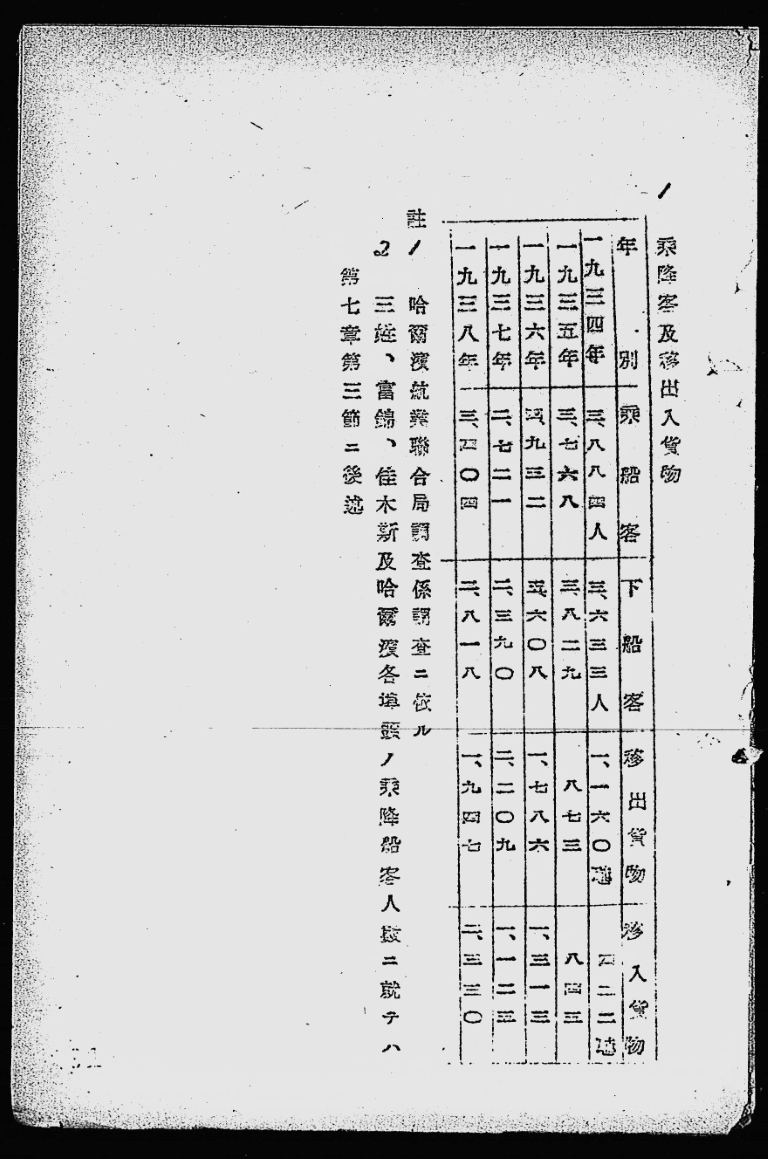 乘降客及移出入貨物
年別 乘船客 下船客 移出貨物 移入貨物
一九三四年 三、八八四人 三、六三三人 一、一六〇瓲 四二二瓲
一九三五年 三、七六八 三、八二九 八七三 八四三
一九三六年 四、九三二 五、六〇八 一、七八六 一、三一三
一九三七年 二、七二一 二、三九〇 二、二〇九 一、一二三
一九三八年 三、四〇四 二、八一八 一、九四七 二、三三〇
註1 哈爾濱航業聯合局調查係調查ニ依ル
2 三姓、富錦、佳木斯及哈爾濱各埠頭ノ乘降船客人數ニ就テハ
第七章第三節ニ後述